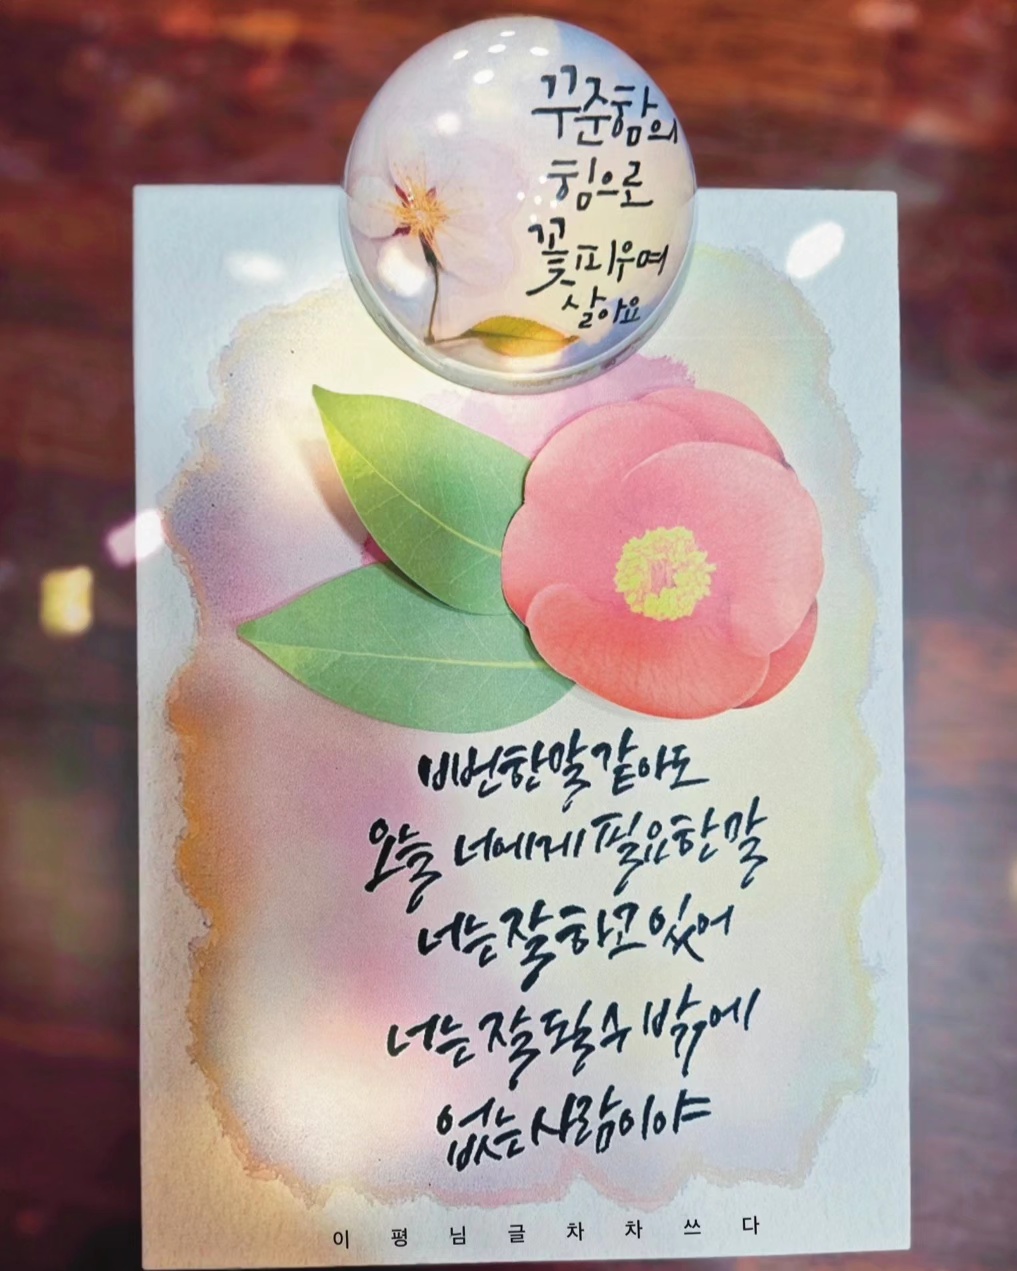 꾸준함의
힘으로
꽃피우며
살아요
비번한말같아도
오늘 너에게 필요한 말
너는 잘 하고 있어
너는 잘 될 수 밖에
없는 사람이야
이평님글차차쓰다